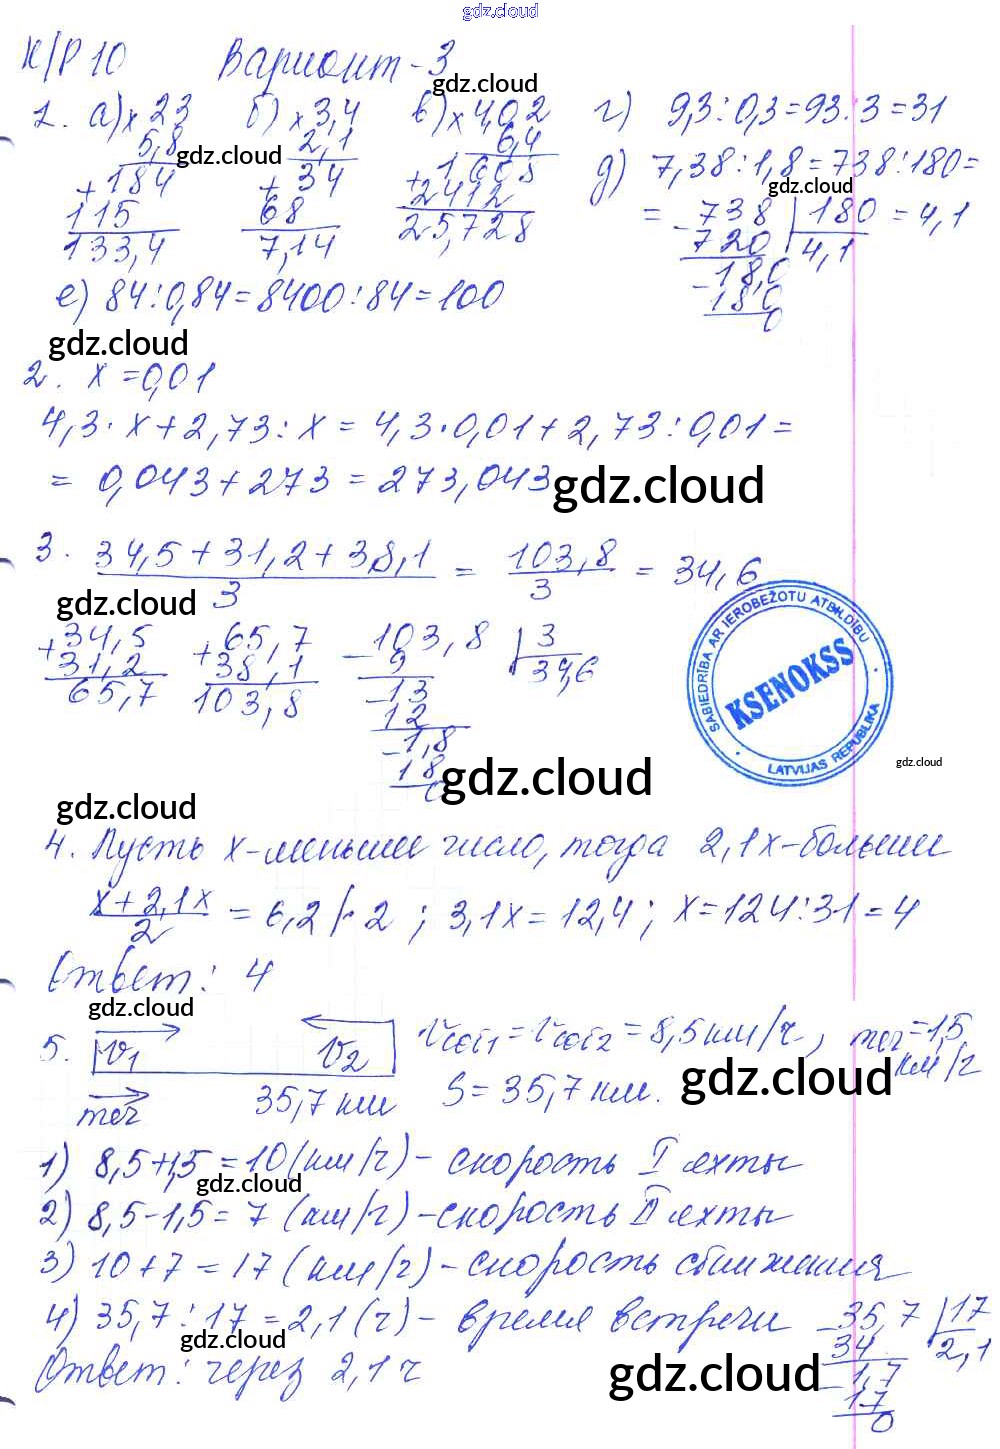 gdz.cloud
К/Р 10 Вариант-3
gdz.cloud
1. а) × 23 б) × 3,4 в) × 4,02 г) 9,3 : 0,3 = 93 : 3 = 31
5,8 2,1 6,4
gdz.cloud
+ 184 + 34 + 1 608 д) 7,38 : 1,8 = 738 : 180 =
gdz.cloud
115 68 2412 = - 738 | 180 = 4,1
133,4 7,14 25,728 720 4,1
- 18,0
18,0
0
е) 84 : 0,84 = 8400 : 84 = 100
gdz.cloud
2. x = 0,01
4,3 · x + 2,73 : x = 4,3 · 0,01 + 2,73 : 0,01 =
= 0,043 + 273 = 273,043
gdz.cloud
3. 34,5 + 31,2 + 38,1 = 103,8 = 34,6
3 3
gdz.cloud
+ 34,5 + 65,7 - 103,8 | 3
31,2 38,1 9 34,6
65,7 103,8 - 13
12
- 1,8
18
0
SABIEDRĪBA AR IEROBEŽOTU ATBILDĪBU
KSENOKSS
LATVIJAS REPUBLIKA
gdz.cloud
gdz.cloud
gdz.cloud
4. Пусть x-меньшее число, тогда 2,1x-большее
x + 2,1x = 6,2 |· 2 ; 3,1x = 12,4 ; x = 124 : 31 = 4
2
Ответ: 4
gdz.cloud
5. v1 v2 vсоб1 = vсоб2 = 8,5 км/ч, теч = 1,5 км/ч
теч 35,7 км S = 35,7 км.
gdz.cloud
1) 8,5+1,5 = 10 (км/ч) - скорость I яхты
gdz.cloud
2) 8,5-1,5 = 7 (км/ч) - скорость II яхты
3) 10 + 7 = 17 (км/ч) - скорость сближения
4) 35,7 : 17 = 2,1 (ч) - время встречи - 35,7 | 17
gdz.cloud
34 2,1
Ответ: через 2,1 ч
- 1,7
gdz.cloud
17
0